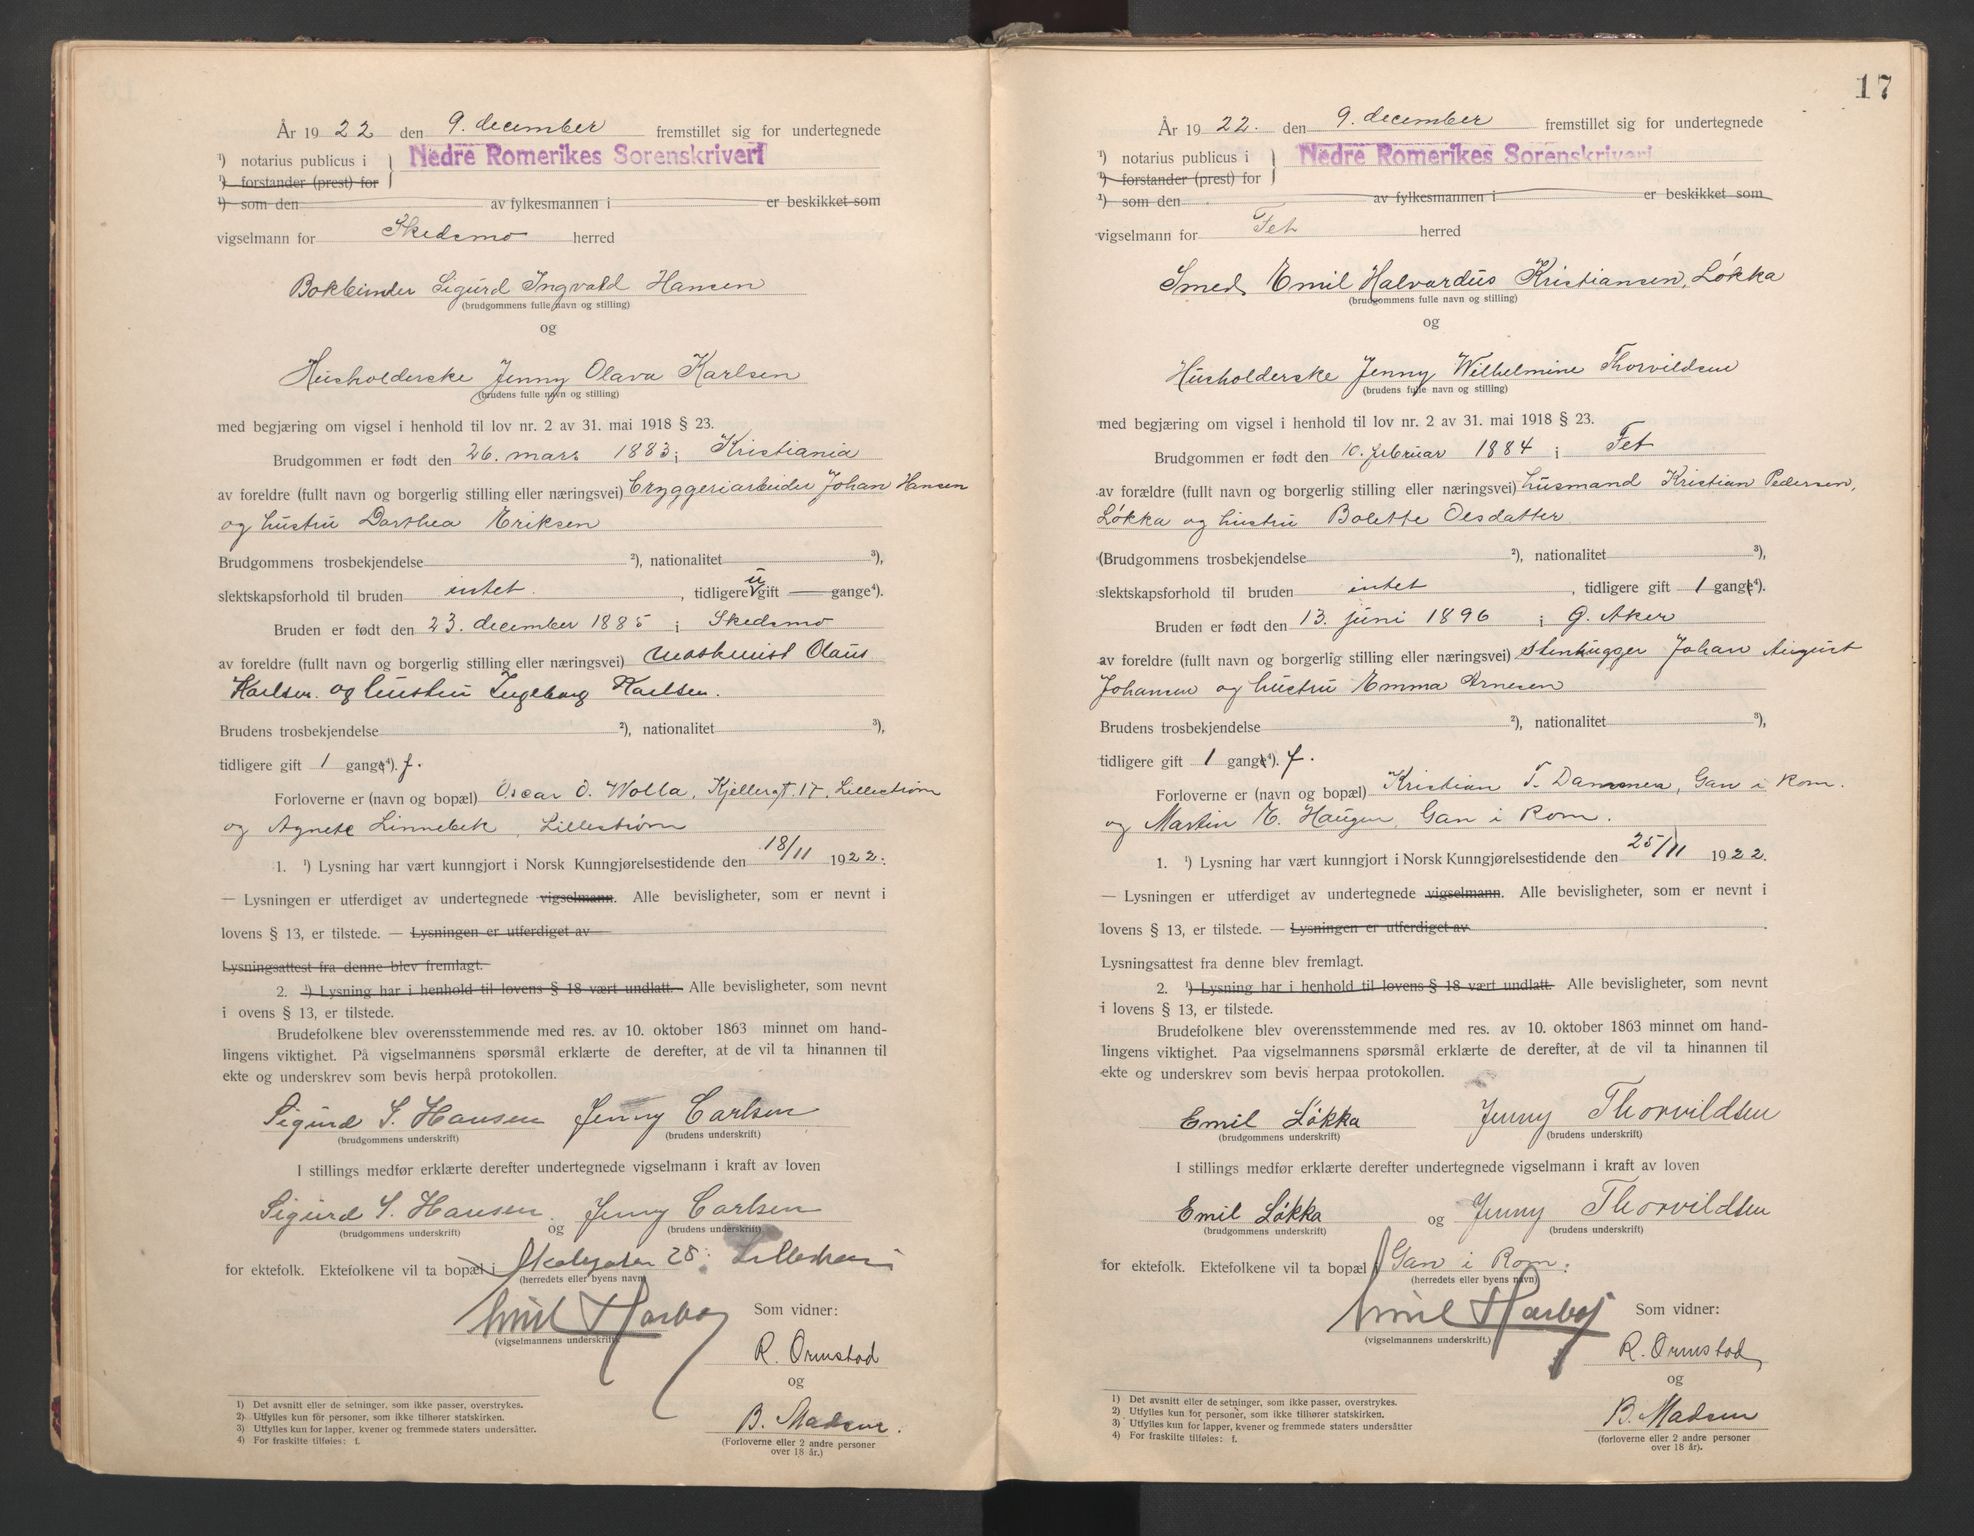 År 1922 den 9. december fremstillet sig for undertegnede
¹) notarius publicus i } Nedre Romerikes Sorenskriveri
¹) forstander (prest) for
¹) som den av fylkesmannen i er beskikket som
vigselmann for Skedsmo herred
Bokbinder Sigurd Ingvald Hansen
(brudgommens fulle navn og stilling)
og
Husholderske Jenny Olava Karlsen
(brudens fulle navn og stilling)
med begjæring om vigsel i henhold til lov nr. 2 av 31. mai 1918 § 23.
Brudgommen er født den 26. mars 1883 i Kristiania
av foreldre (fullt navn og borgerlig stilling eller næringsvei) bryggeriarbeider Johan Hansen
og hustru Dorthea Eriksen
Brudgommens trosbekjendelse ²), nationalitet ³),
slektskapsforhold til bruden intet. , tidligere u gift gange⁴).
Bruden er født den 23. december 1885 i Skedsmo
av foreldre (fullt navn og borgerlig stilling eller næringsvei) maskinist Olaus
Karlsen og hustru Ingeborg Karlsen.
Brudens trosbekjendelse ²), nationalitet ³),
tidligere gift 1 gange⁴). f.
Forloverne er (navn og bopæl) Oscar O. Wolla, Kjellergt. 17, Lillestrøm
og Agnete Linnebek, Lillestrøm
1. ¹) Lysning har vært kunngjort i Norsk Kunngjørelsestidende den 18/11 1922.
— Lysningen er utferdiget av undertegnede vigselmann. Alle bevisligheter, som er nevnt i
lovens § 13, er tilstede. — Lysningen er utferdiget av
Lysningsattest fra denne blev fremlagt.
2. ¹) Lysning har i henhold til lovens § 18 vært undlatt. Alle bevisligheter, som nevnt
i ovens § 13, er tilstede.
Brudefolkene blev overensstemmende med res. av 10. oktober 1863 minnet om hand-
lingens viktighet. På vigselmannens spørsmål erklærte de derefter, at de vil ta hinannen til
ekte og underskrev som bevis herpå protokollen.
Sigurd I. Hansen Jenny Carlsen
(brudgommens underskrift) (brudens underskrift)
I stillings medfør erklærte derefter undertegnede vigselmann i kraft av loven
Sigurd I. Hansen og Jenny Carlsen
(brudgommens underskrift) (brudens underskrift)
for ektefolk. Ektefolkene vil ta bopæl i Skolegaten 28. Lillestrøm
(herredets eller byens navn)
Emil Harboj Som vidner:
(vigselmannens underskrift)
R. Ormstad
og
B. Madsen.
(Forloverne eller 2 andre personer
over 18 år.)
1) Det avsnitt eller de setninger, som ikke passer, overstrykes.
2) Utfylles kun for personer, som ikke tilhører statskirken.
3) Utfylles kun for lapper, kvener og fremmede staters undersåtter.
4) For fraskilte tilføies: f.
17
År 1922. den 9. december fremstillet sig for undertegnede
¹) notarius publicus i } Nedre Romerikes Sorenskriveri
¹) forstander (prest) for
¹) som den av fylkesmannen i er beskikket som
vigselmann for Fet herred
Smed Emil Halvardus Kristiansen, Løkka
(brudgommens fulle navn og stilling)
og
Husholderske Jenny Wilhelmine Thorvildsen
(brudens fulle navn og stilling)
med begjæring om vigsel i henhold til lov nr. 2 av 31. mai 1918 § 23.
Brudgommen er født den 10. februar 1884 i Fet
av forældre (fullt navn og borgerlig stilling eller næringsvei) husmand Kristian Pedersen,
Løkka og hustru Bolette Olsdatter.
(Brudgommens trosbekjendelse ²), nationalitet ³),
slektskapsforhold til bruden intet , tidligere gift 1 gang⁴).
Bruden er født den 13. juni 1896 i G. Aker
av foreldre (fullt navn og borgerlig stilling eller næringsvei) stenhugger Johan August
Johansen og hustru Emma Arnesen
Brudens trosbekjendelse ²), nationalitet ³),
tidligere gift 1 gange⁴). f.
Forloverne er (navn og bopæl) Kristian T. Dammen, Gan i Rom.
og Martin E. Haugen, Gan i Rom.
1. ¹) Lysning har vært kunngjort i Norsk Kunngjørelsestidende den 25/11 1922.
— Lysningen er utferdiget av undertegnede vigselmann. Alle bevisligheter, som er nevnt i
lovens § 13, er tilstede. — Lysningen er utferdiget av .
Lysningsattest fra denne blev fremlagt.
2. ¹) Lysning har i henhold til lovens § 18 vært undlatt. Alle bevisligheter, som nevnt
i lovens § 13, er tilstede.
Brudefolkene blev overensstemmende med res. av 10. oktober 1863 minnet om hand-
lingens viktighet. Paa vigselmannens spørsmål erklærte de derefter, at de vil ta hinannen til
ekte og underskrev som bevis herpaa protokollen.
Emil Løkka Jenny Thorvildsen
(brudgommens underskrift) (brudens underskrift)
I stillings medfør erklærte derefter undertegnede vigselmann i kraft av loven
Emil Løkka og Jenny Thorvildsen
(brudgommens underskrift) (brudens underskrift)
for ektefolk. Ektefolkene vil ta bopæl i Gan i Rom.
(herredets eller byens navn)
Emil Harboj Som vidner:
(vigselmannens underskrift.)
R. Ormstad
og
B. Madsen
(forloverne eller 2 andre personer
over 18 år).
1) Det avsnitt eller de setninger, som ikke passer, overstrykes.
2) Utfylles kun for personer, som ikke tilhører statskirken.
3) Utfylles kun for lapper, kvener og fremmede staters undersåtter
4) For fraskilte tilføies: f.